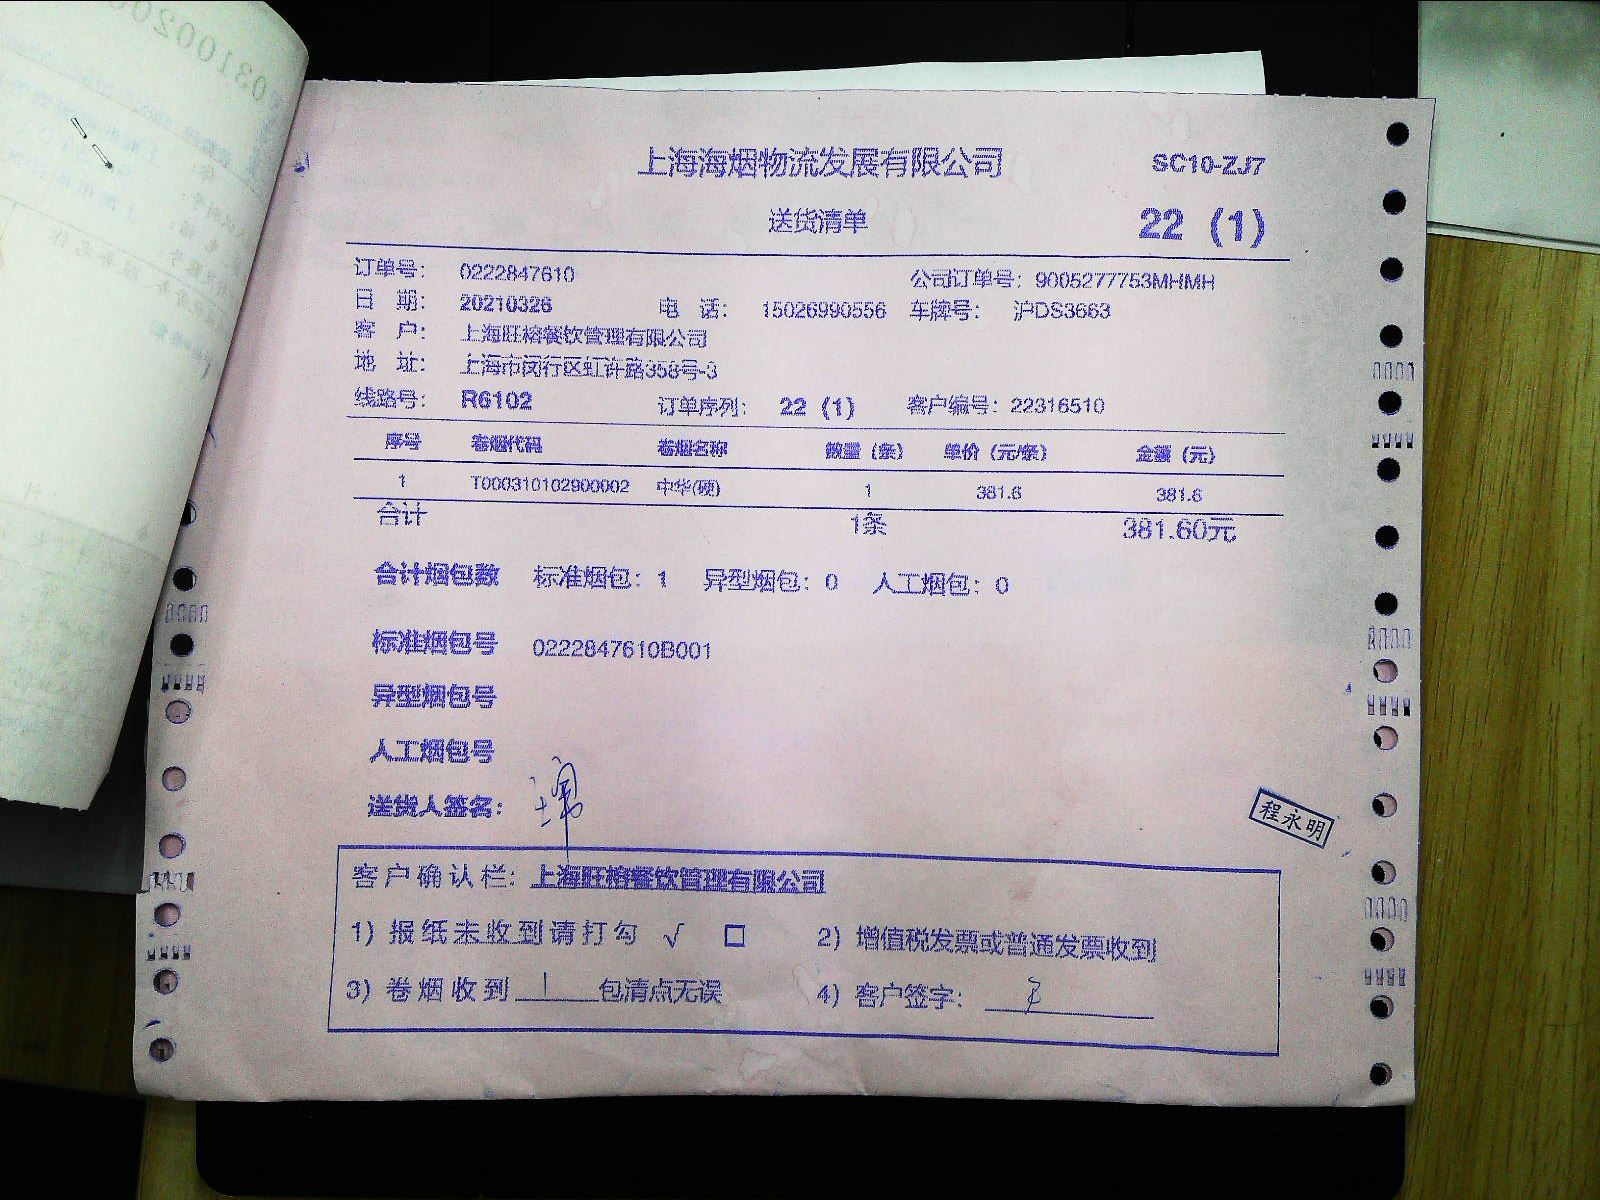 上海海烟物流发展有限公司 SC10-ZJ7
送货清单 22 (1)
订单号: 0222847610 公司订单号: 9005277753MHMH
日 期: 20210326 电 话: 15026990556 车牌号: 沪DS3663
客 户: 上海旺榕餐饮管理有限公司
地 址: 上海市闵行区虹许路358号-3
线路号: R6102 订单序列: 22 (1) 客户编号: 22316510
序号 卷烟代码 卷烟名称 数量 (条) 单价 (元/条) 金额 (元)
1 T000310102900002 中华(硬) 1 381.6 381.6
合计 1条 381.60元
合计烟包数 标准烟包: 1 异型烟包: 0 人工烟包: 0
标准烟包号 0222847610B001
异型烟包号
人工烟包号
送货人签名:
程永明
客户确认栏: 上海旺榕餐饮管理有限公司
1) 报纸未收到请打勾 √ □ 2) 增值税发票或普通发票收到
3) 卷烟收到 1 包清点无误 4) 客户签字: